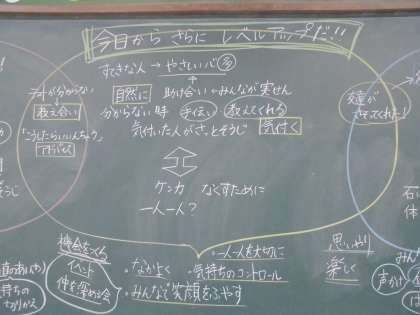 今日から さらに レベルアップだ!!
すてきな人→やさしい心多
自然に 助け合い→みんなが実せん
分からない時 手伝い・教えてくれる
気付いた人がさっとそうじ 気付く
ケンカ なくすために
一人一人?
が分からない
教え合い
「こうしたらいいんちゃう」
アドバイス
機会をつくる
イベント
仲を深める会
・一人一人を大切に
・なかよく ・気持ちのコントロール
・みんなで笑顔をふやす
思いやり
楽しく
友達が
せてくれた!
みん
声かけ